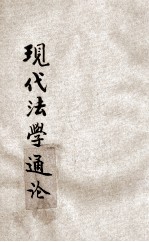 現代法學通论